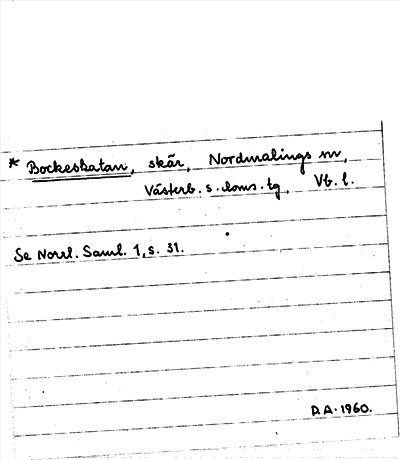 * Bockeskatan, skär, Nordmalings sn,
Västerb. s. doms. tg, Vb. l.
Se Norrl. Saml. 1, s. 31.
D.A. 1960.